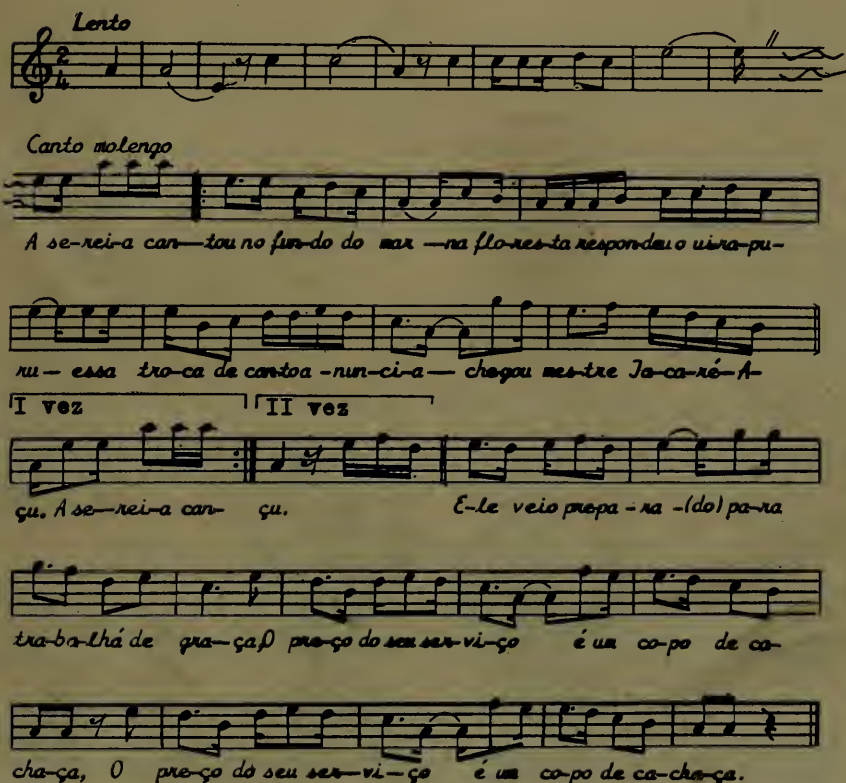 Lento
2
4
Canto molengo
A se-rei-a can—tou no fun-do do mar —na flo-res-ta respondeu o uira-pu-
ru— essa tro-ca de cantoa -nun-ci-a— chegou mes-tre Ja-ca-ré-A-
I vez II vez
çu. A se—rei-a can- çu. E-le veio prepa-ra-(do) pa-ra
tra-ba-lhá de gra—ça,O pre-ço do seu ser-vi-ço é um co-po de ca-
cha-ça, O pre-ço do seu ser—vi-ço é um co-po de ca-cha-ça.